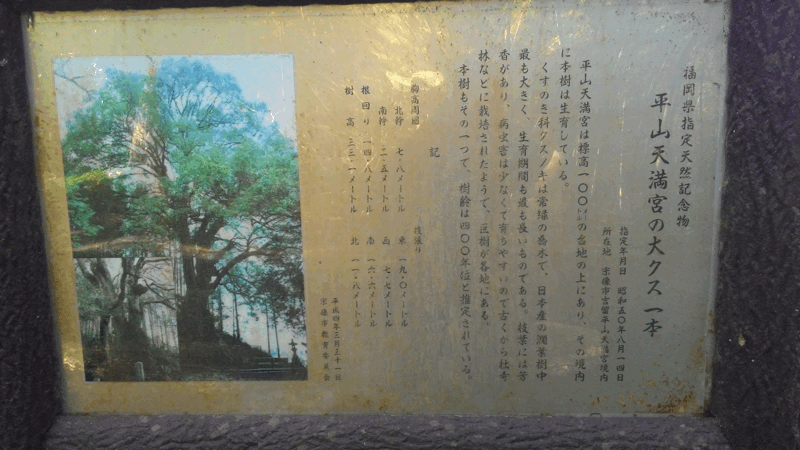 福岡県指定天然記念物
平山天満宮の大クス一本
指定年月日 昭和五〇年八月一四日
所在地 宗像市吉留平山天満宮境内
平山天満宮は標高一〇〇㍍の台地の上にあり、その境内
に本樹は生育している。
くすのき科クスノキは常緑の喬木で、日本産の濶葉樹中
最も大きく、生育期間も最も長いものである。枝葉には芳
香があり、病虫害は少なくて育ちやすいので古くから社寺
林などに栽培されたようで、巨樹が各地にある。
本樹もその一つで、樹齢は四〇〇年位と推定されている。
記
胸高周囲 北幹 七・八メートル
南幹 二・五メートル
根回り 一四・八メートル
樹高 三三・一メートル
枝張り 東 一九・〇メートル
西 七・七メートル
南 一六・六メートル
北 一一・八メートル
平成四年三月三十一日
宗像市教育委員会